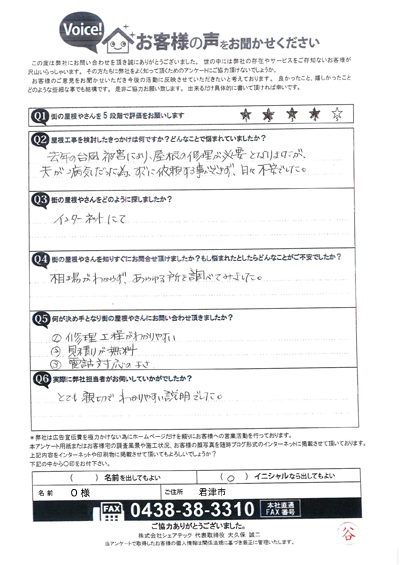 Voice! お客様の声をお聞かせください
この度は弊社にお問い合わせを頂き誠にありがとうございました。世の中には弊社の存在やサービスをご存知ないお客様が
沢山いらっしゃいます。その方たちに弊社をよく知って頂くためのアンケートにご協力頂けないでしょうか。
お客様のご意見をお聞かせいただき今後の活動に反映させていただきたいと考えております。良かったこと、嬉しかったこと
どのような些細な事でも結構です。是非ご協力お願い致します。出来るだけ具体的に書いて頂ければ幸いです。
Q1 街の屋根やさんを5段階で評価をお願いします ★ ★ ★ ★ ☆
Q2 屋根工事を検討したきっかけは何ですか？どんなことで悩まれていましたか？
去年の台風被害により、屋根の修理が必要となりましたが、
夫が病気だった為、すぐに依頼する事ができず、日々不安でした。
Q3 街の屋根やさんをどのように探しましたか？
インターネットにて
Q4 街の屋根やさんを知りすぐにお問合せ頂けましたか？もし悩まれたとしたらどんなことがご不安でしたか？
相場がわからず、あらゆる所を調べてみました。
Q5 何が決め手となり街の屋根やさんにお問い合わせ頂きましたか？
① 修理工程がわかりやすい
② 見積りが無料
③ 電話対応の良さ
Q6 実際に弊社担当者がお伺いしていかがでしたか？
とても親切でわかりやすい説明でした。
＊弊社は広告宣伝費を極力かけない為にホームページだけを頼りにお客様への営業活動を行っております。
本アンケート用紙またはお客様宅の調査風景や施工状況、お客様の顔写真を随時ブログ形式のインターネットに掲載させて頂いております。
上記内容をインターネットや印刷物に掲載させて頂いてもよろしいでしょうか？
下記の中から〇印をお付下さい。
（　）名前を出してもよい （○）イニシャルなら出してもよい
名前 O様 ご住所 君津市
FAX 0438-38-3310 本社直通 FAX番号
ご協力ありがとうございました。
株式会社シェアテック 代表取締役 大久保 誠二
当アンケートで取得したお客様の個人情報は関係法規に基づき厳正に管理いたします。
谷